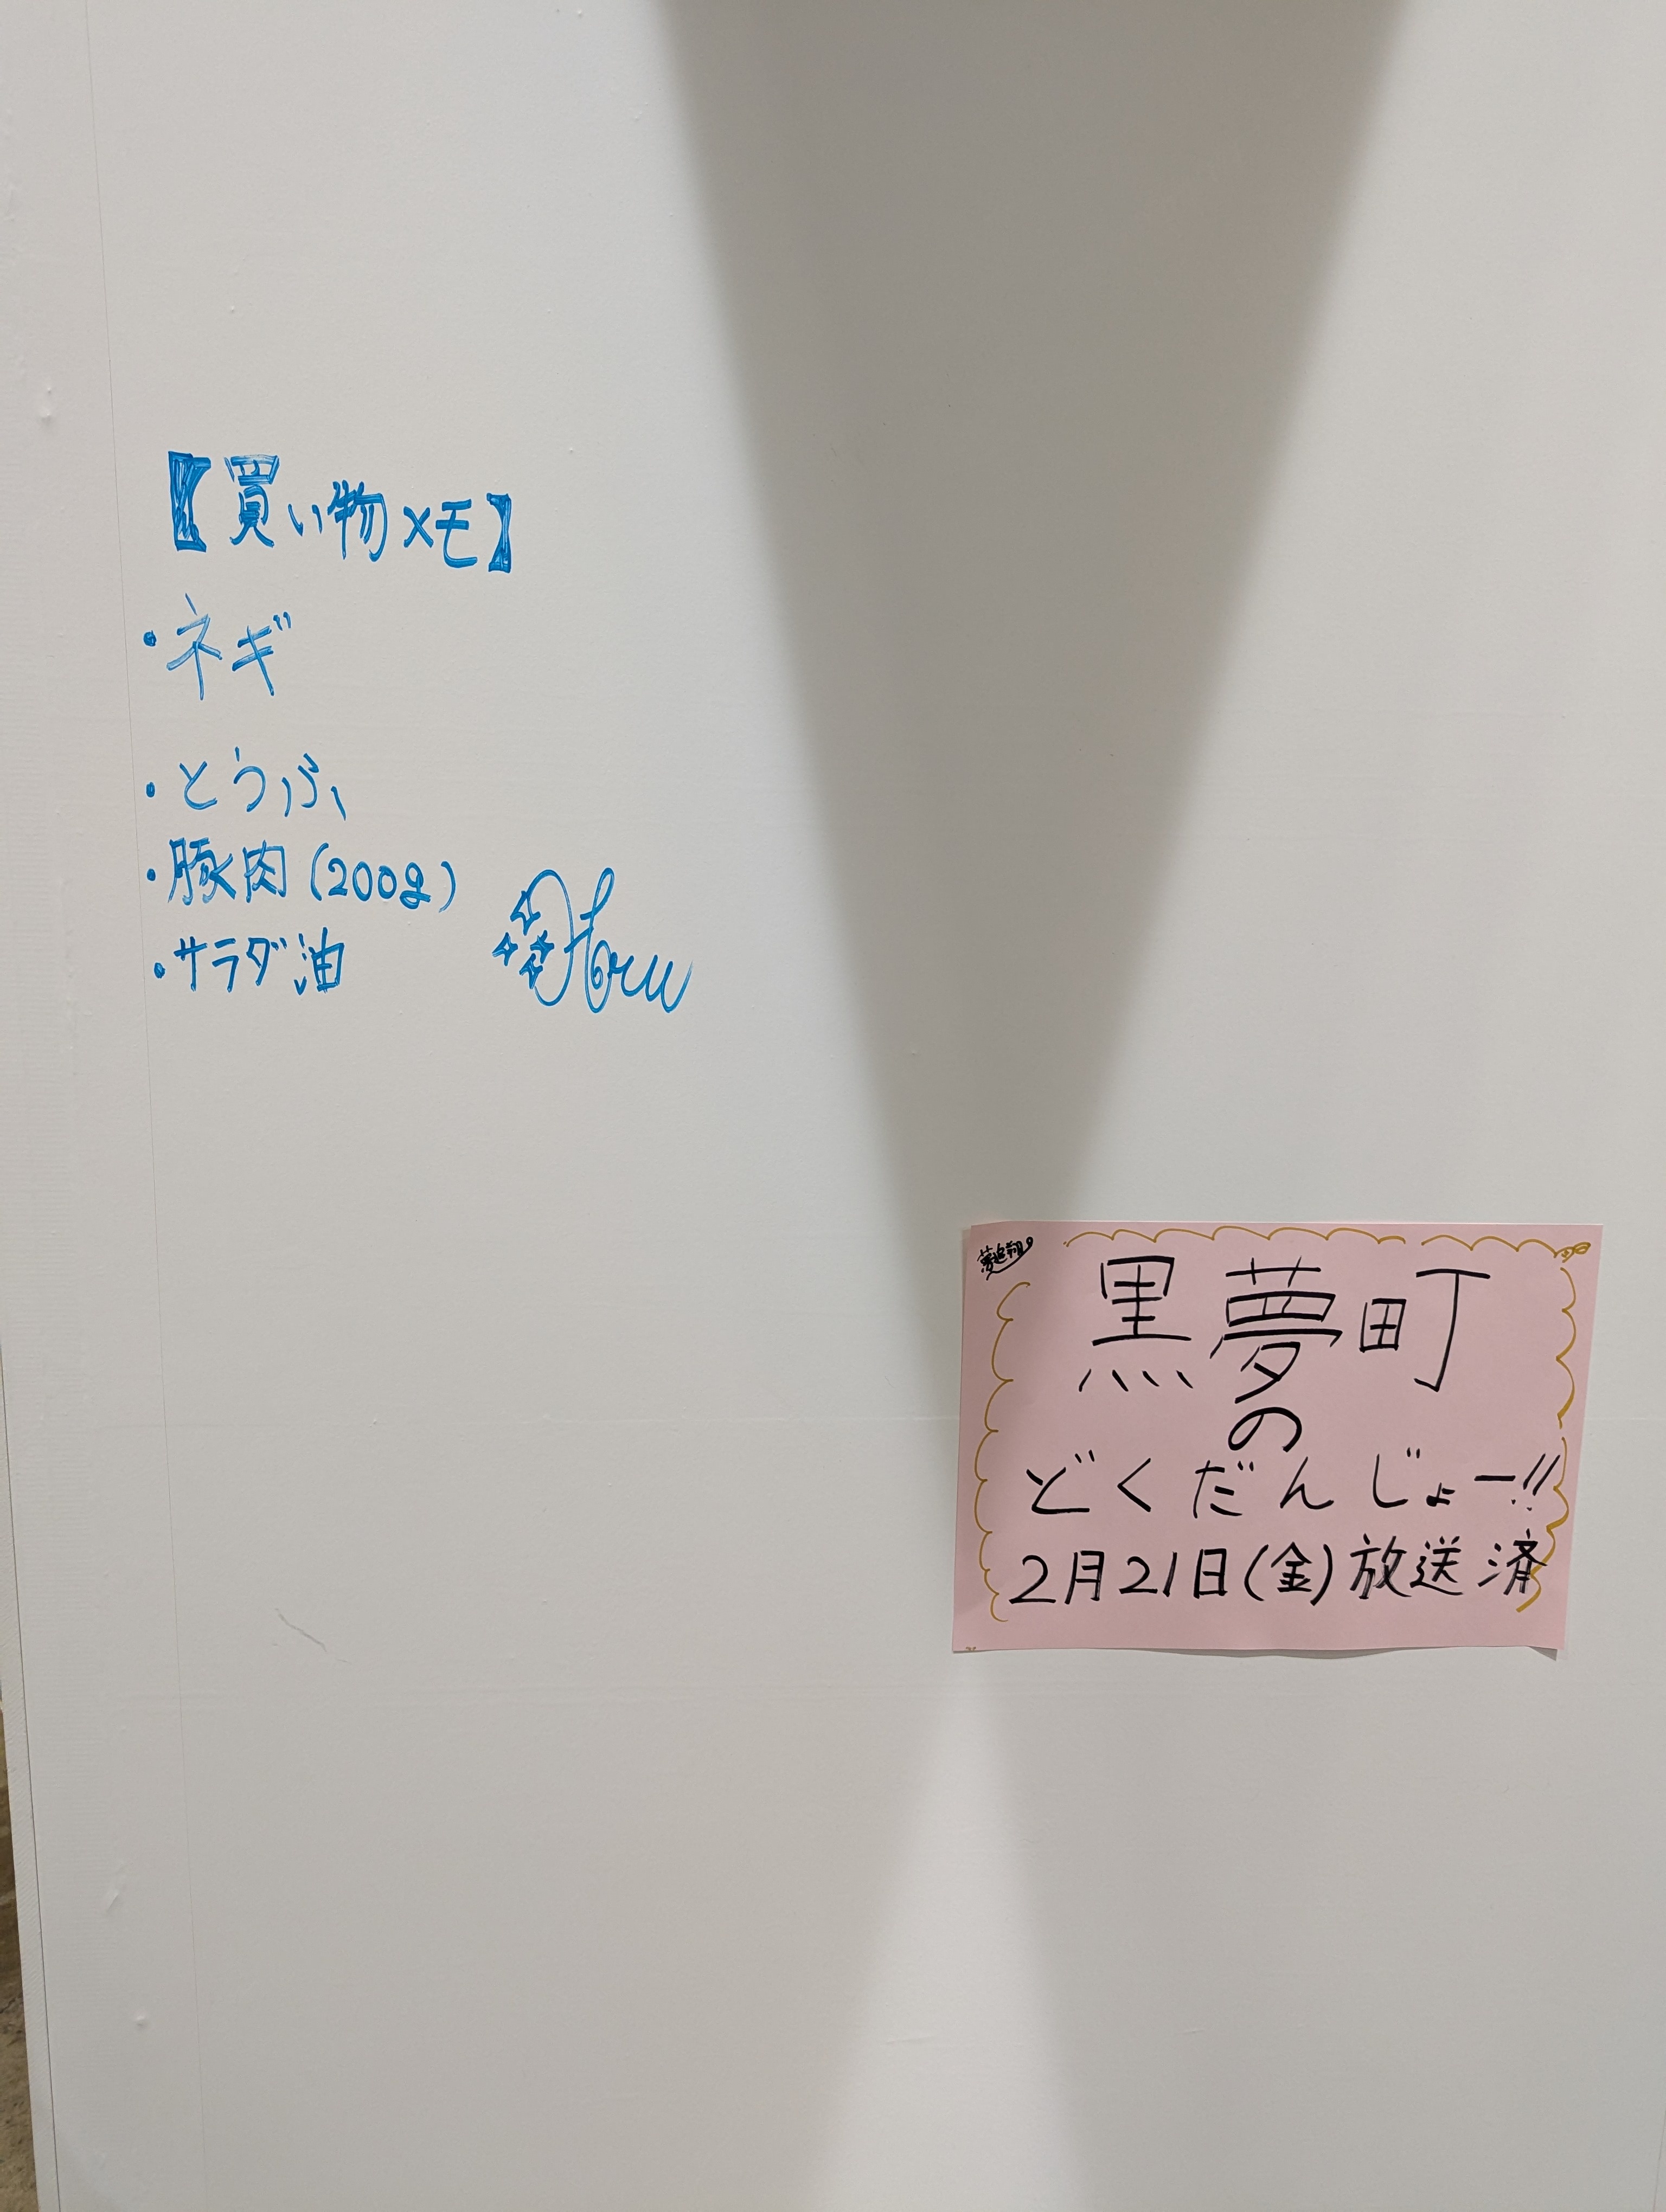 【買い物メモ】
・ネギ
・とうふ
・豚肉(200g)
・サラダ油
黒夢町
の
どくだんじょー!!
2月21日(金)放送済